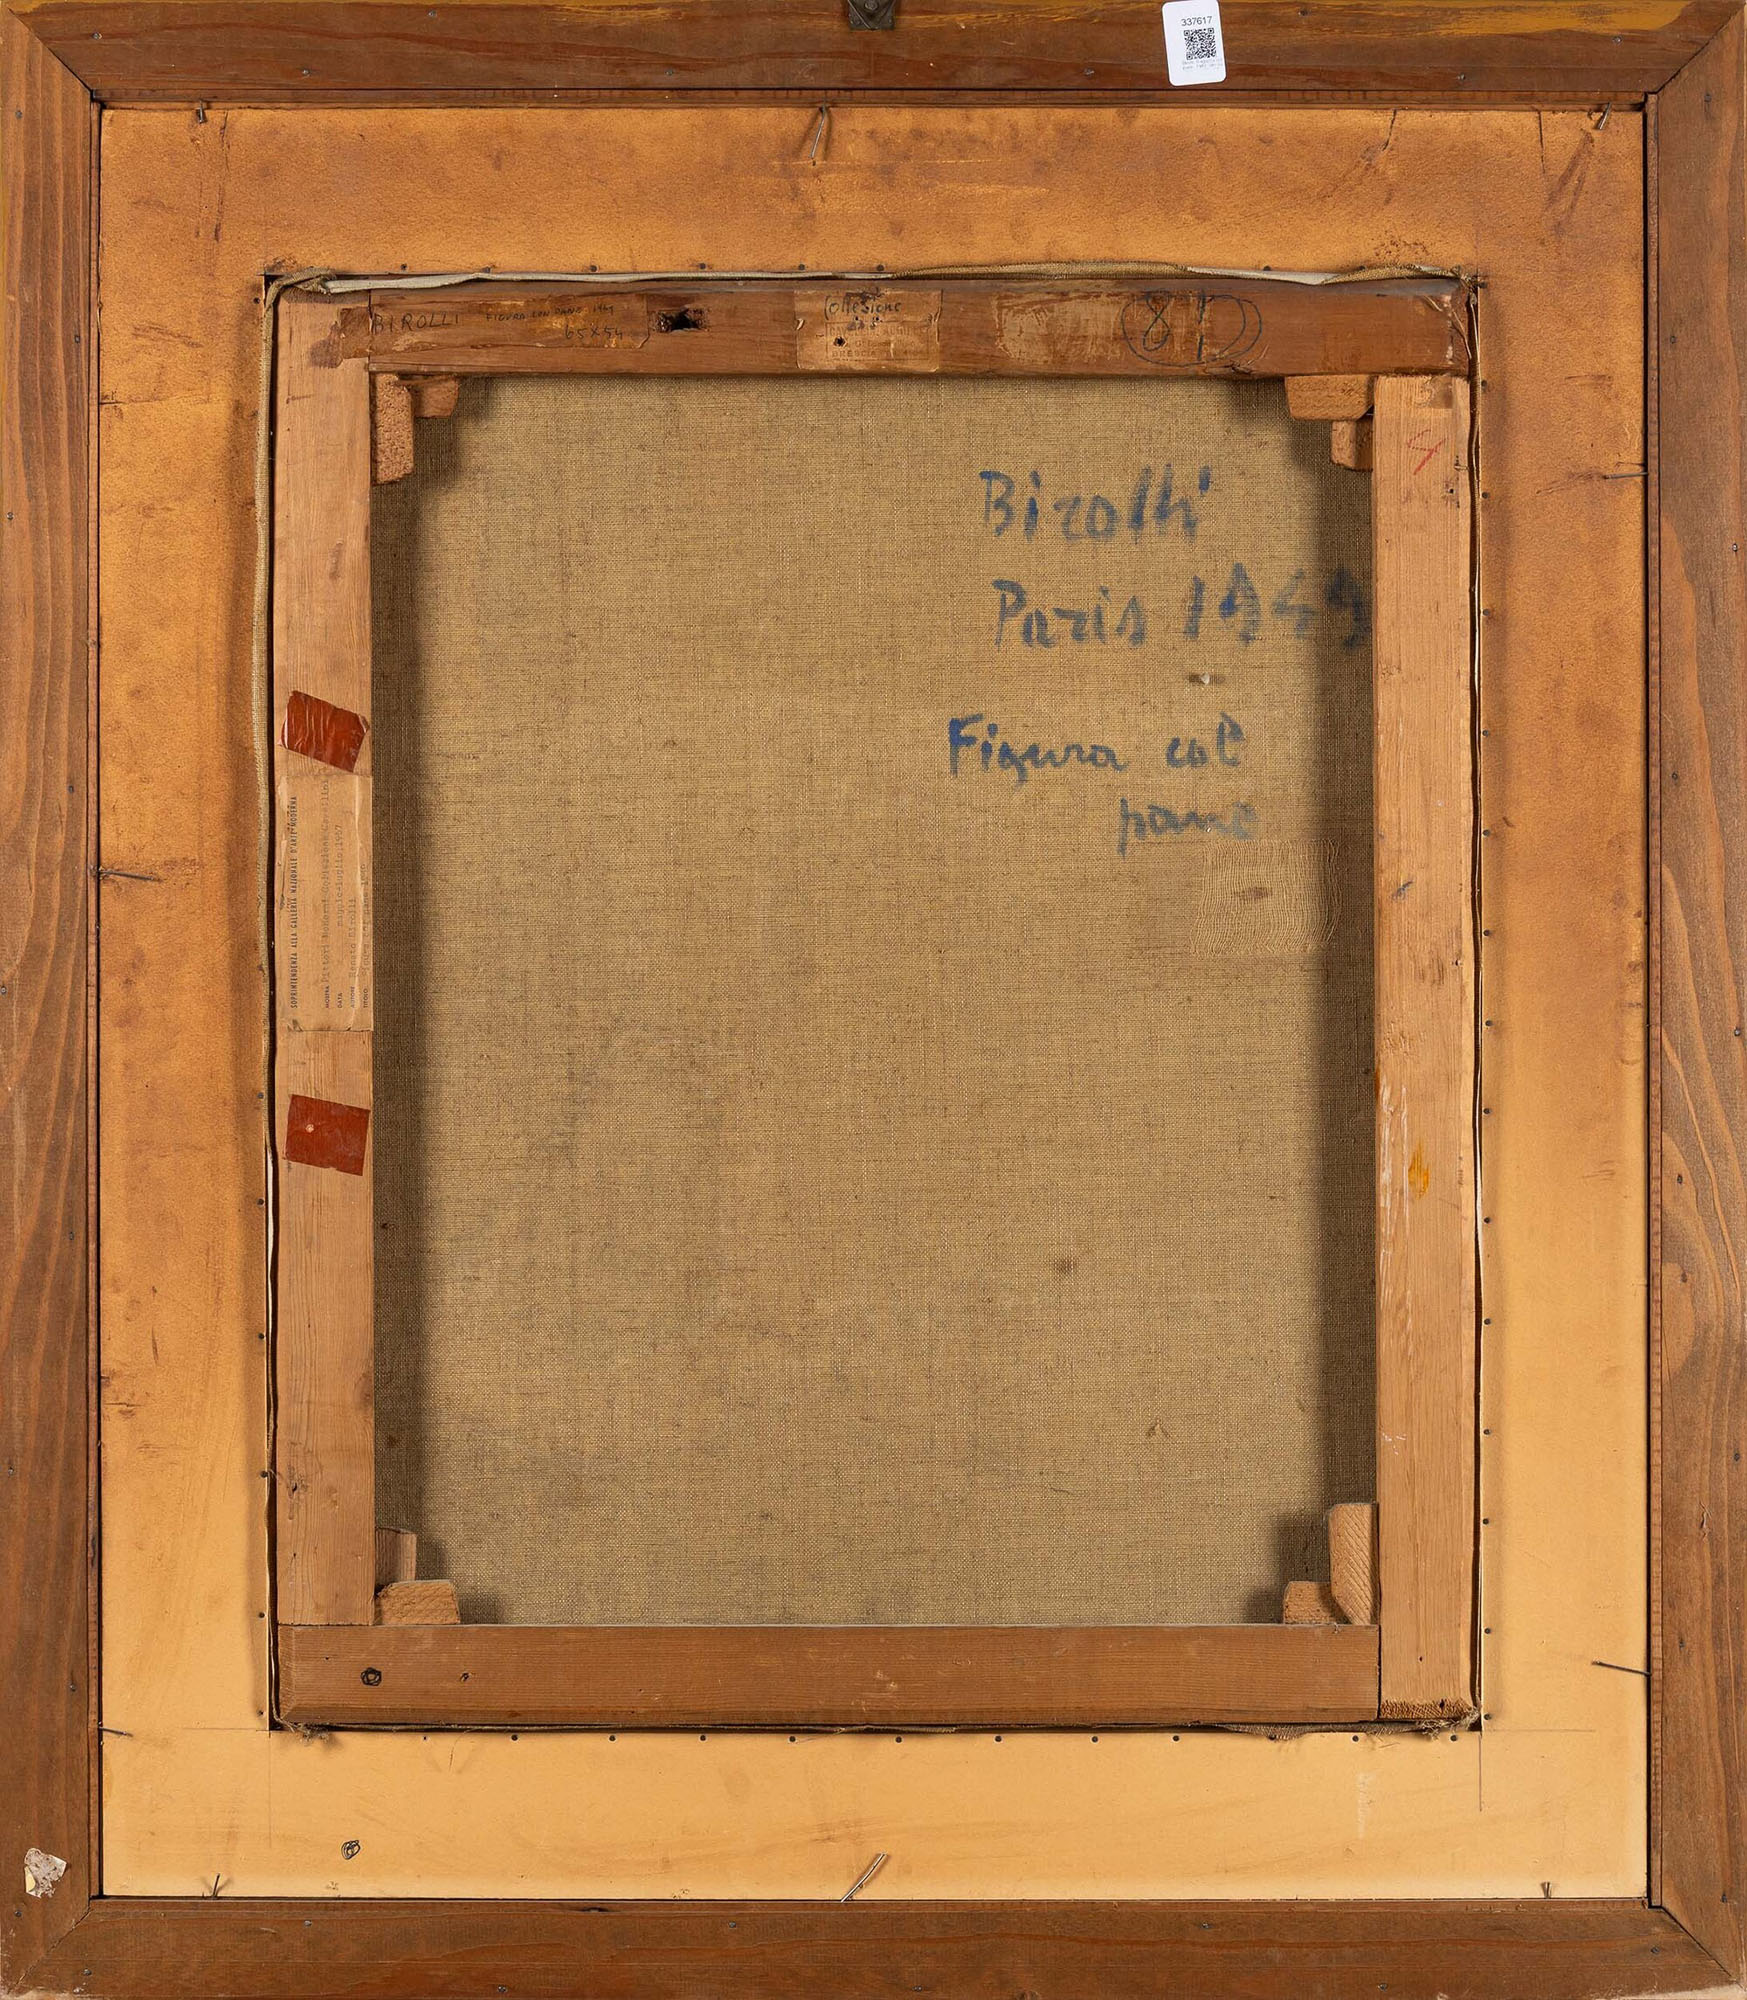 337617
BIROLLI FIGURA CON PANE 1949
65X54
Collezione
BRESCIA
81
Birolli
Paris 1949
Figura col
pane
SOPRINTENDENZA ALLA GALLERIA NAZIONALE D'ARTE MODERNA
MOSTRA Pittori Moderni Collezione Cavellini
DATA maggio-luglio 1957
AUTORE Renato Birolli
TITOLO